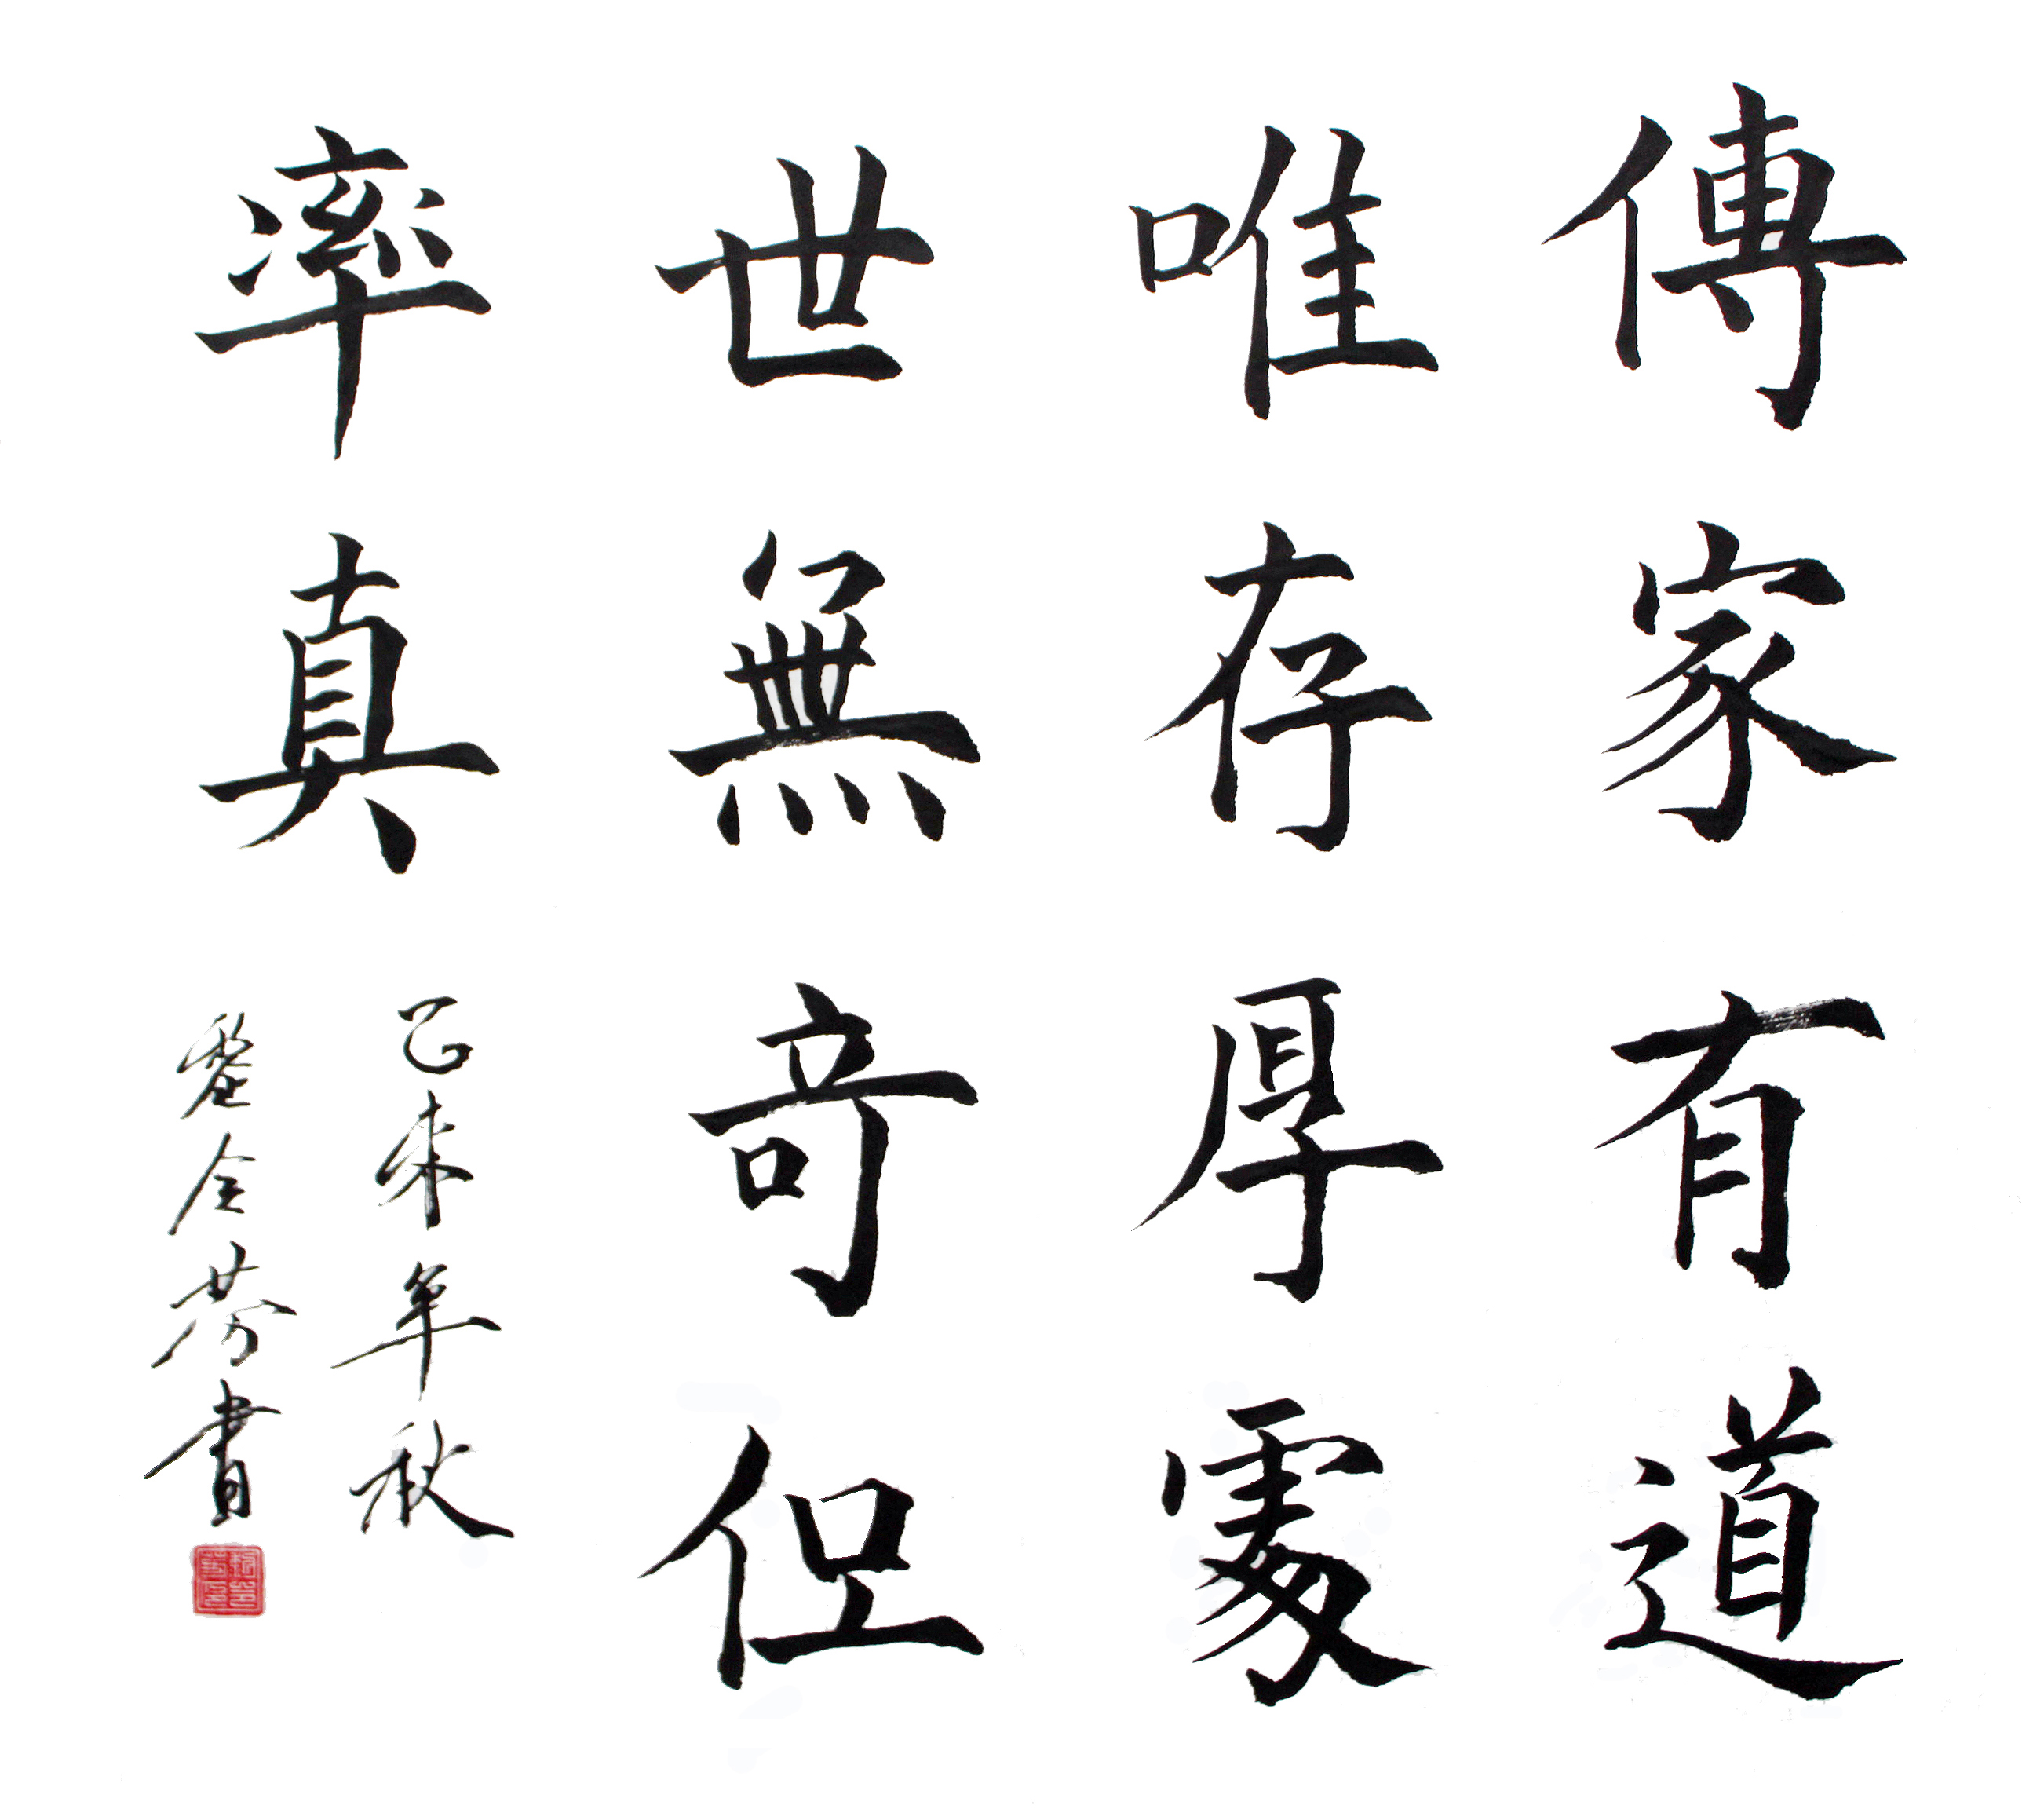 傳家有道
唯存厚處
世無奇但
率真
乙未年秋
全芬書